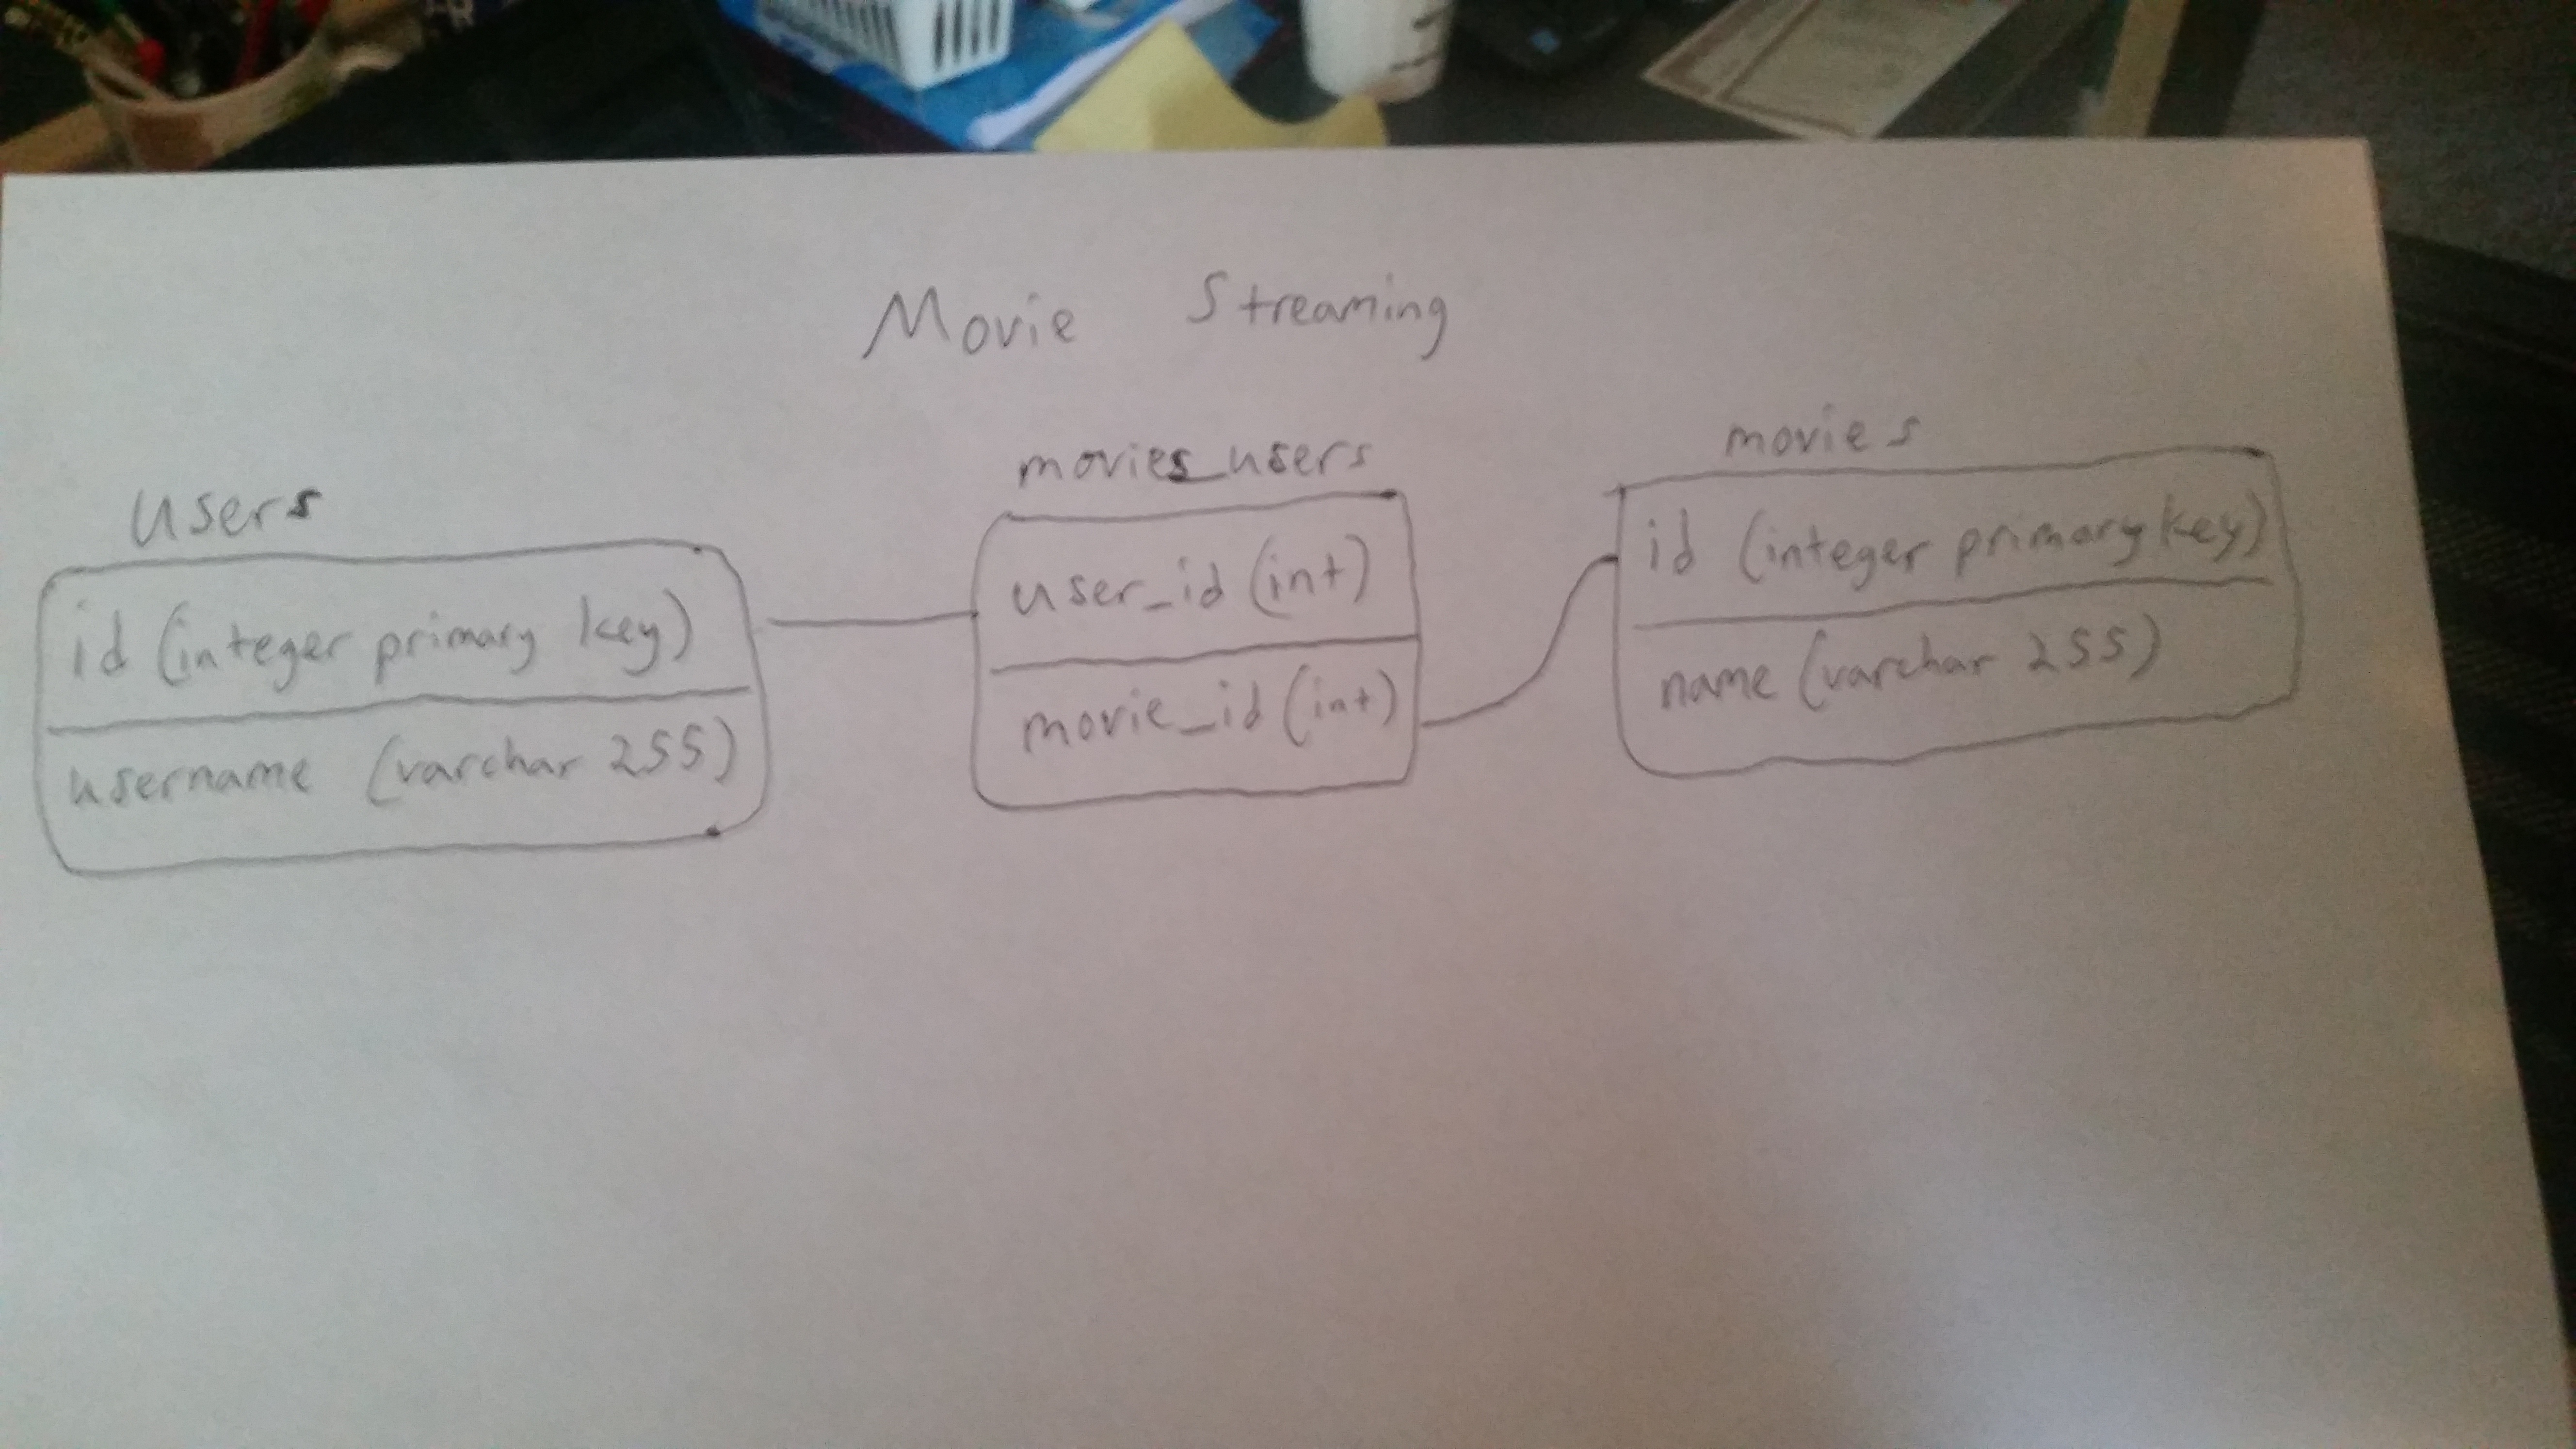 Movie Streaming
users
id (integer primary key)
username (varchar 255)
movies_users
user_id (int)
movie_id (int)
movies
id (integer primary key)
name (varchar 255)